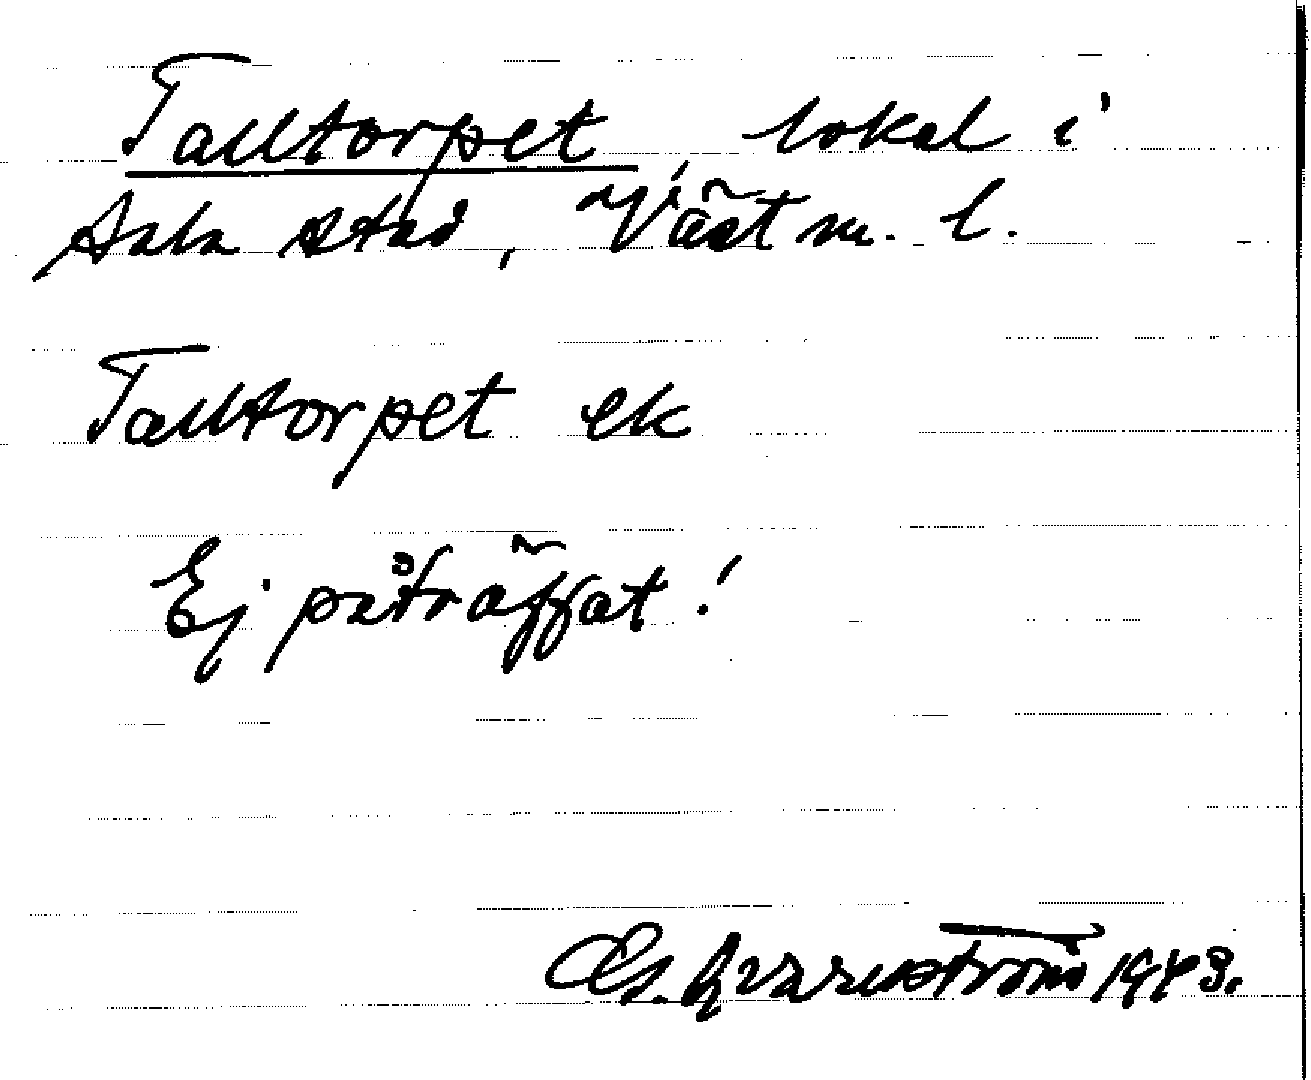 Talltorpet, lokal i
Sala stad, Västm. l.
Talltorpet ek
Ej påträffat!
Qvarnström 1943.